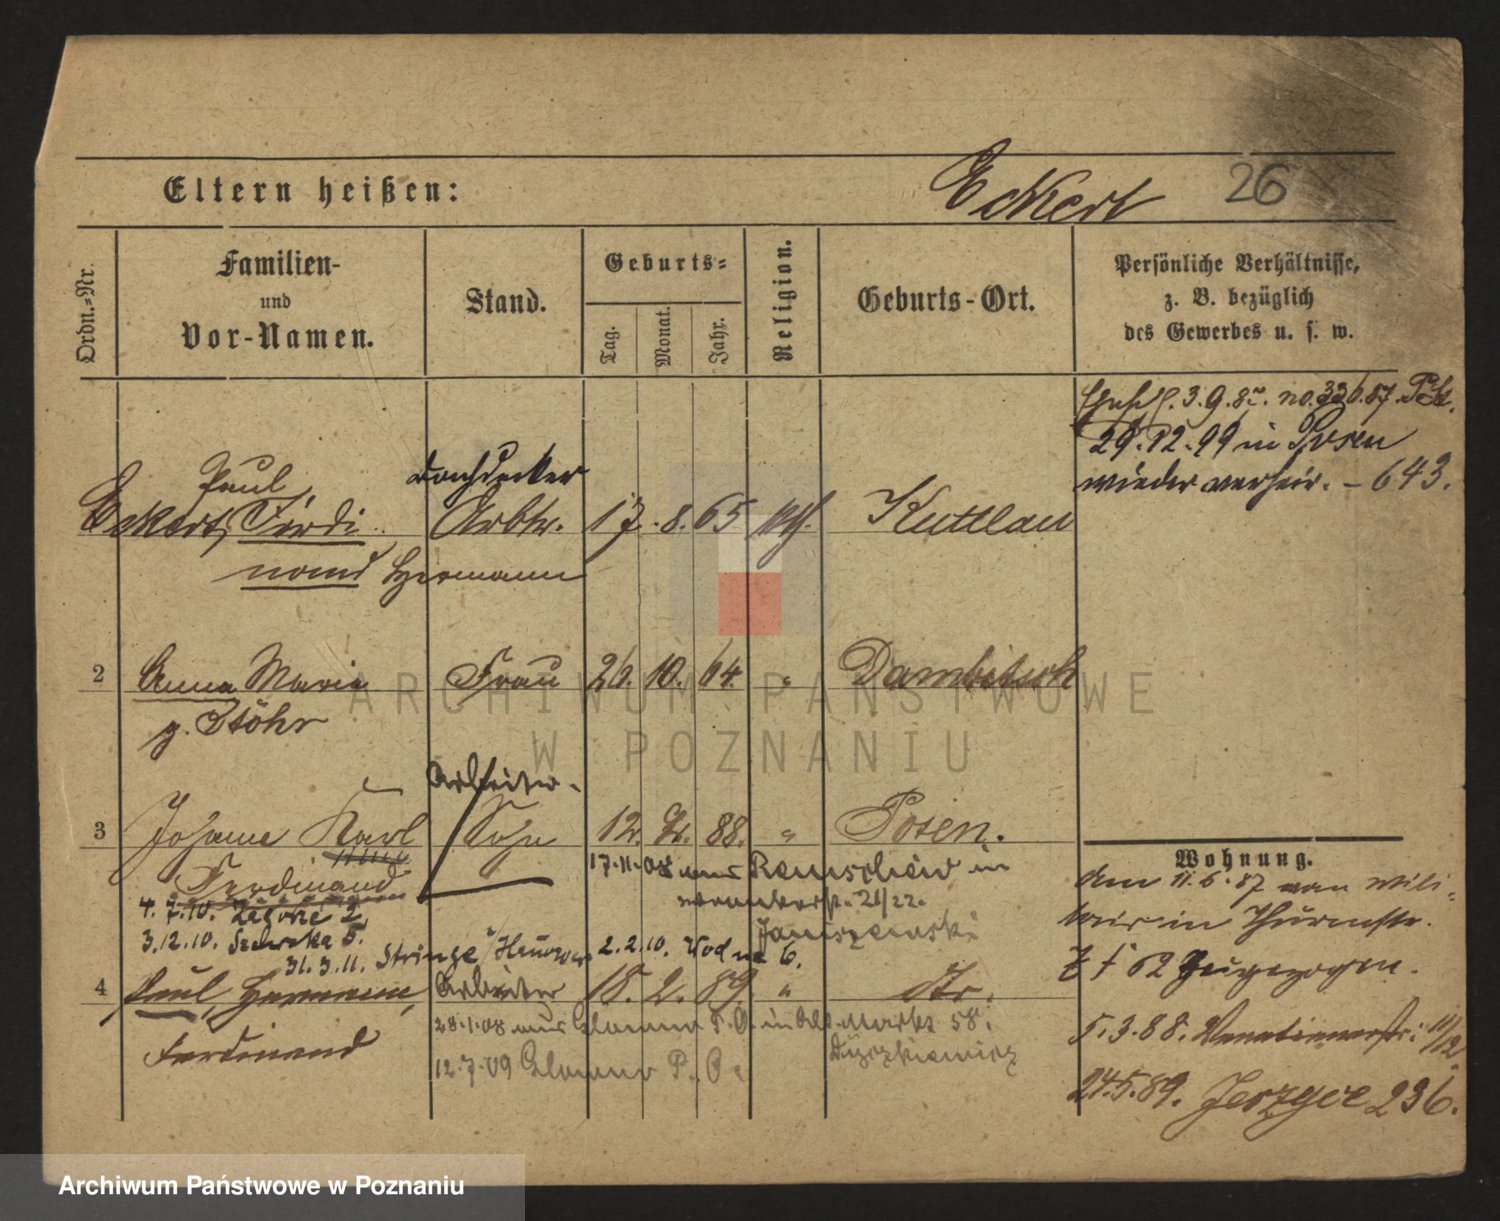 Eltern heißen:
Eckert 26
Ordn.=Nr.
Familien-
und
Vor-Namen.
Stand.
Geburts=
Tag.
Monat.
Jahr.
Religion.
Geburts-Ort.
Persönliche Verhältnisse,
z. B. bezüglich
des Gewerbes u. s. w.
3.9.87. no. 336.87.
29.12.99 in Posen
wieder verheir. – 643.
Paul Dachdecker
Eckert, Ferdi Arbtr. 17. 8. 65 Kuttlau
nand Hermann
2 Anna Marie Frau 26. 10. 64. " Dambitsch
g. Stöhr
Arbeiter.
3 Johann Karl Sohn 12. 88. " Posen.
Ferdinand
17.11.08 aus Remscheid in
21/22.
Januszewski
4.7.10. Zagorze 2
3.12.10. Szewska 5.
31.3.11. 2.2.10. Vodna 6.
4 Paul, Hermann, Arbeiter 18. 2. 89 " dto.
Ferdinand
28.1.08 aus Glowno P. O. in Alt. Markt 58.
12.7.09 Glowno P. O.
Wohnung.
Am 11.6.87 von Mili-
tair in Thurmstr.
62 zugezogen.
5.3.88. Venetianerstr. 11/12
24.5.89. Jerzyce 236.
ARCHIWUM PAŃSTWOWE
W POZNANIU
Archiwum Państwowe w Poznaniu